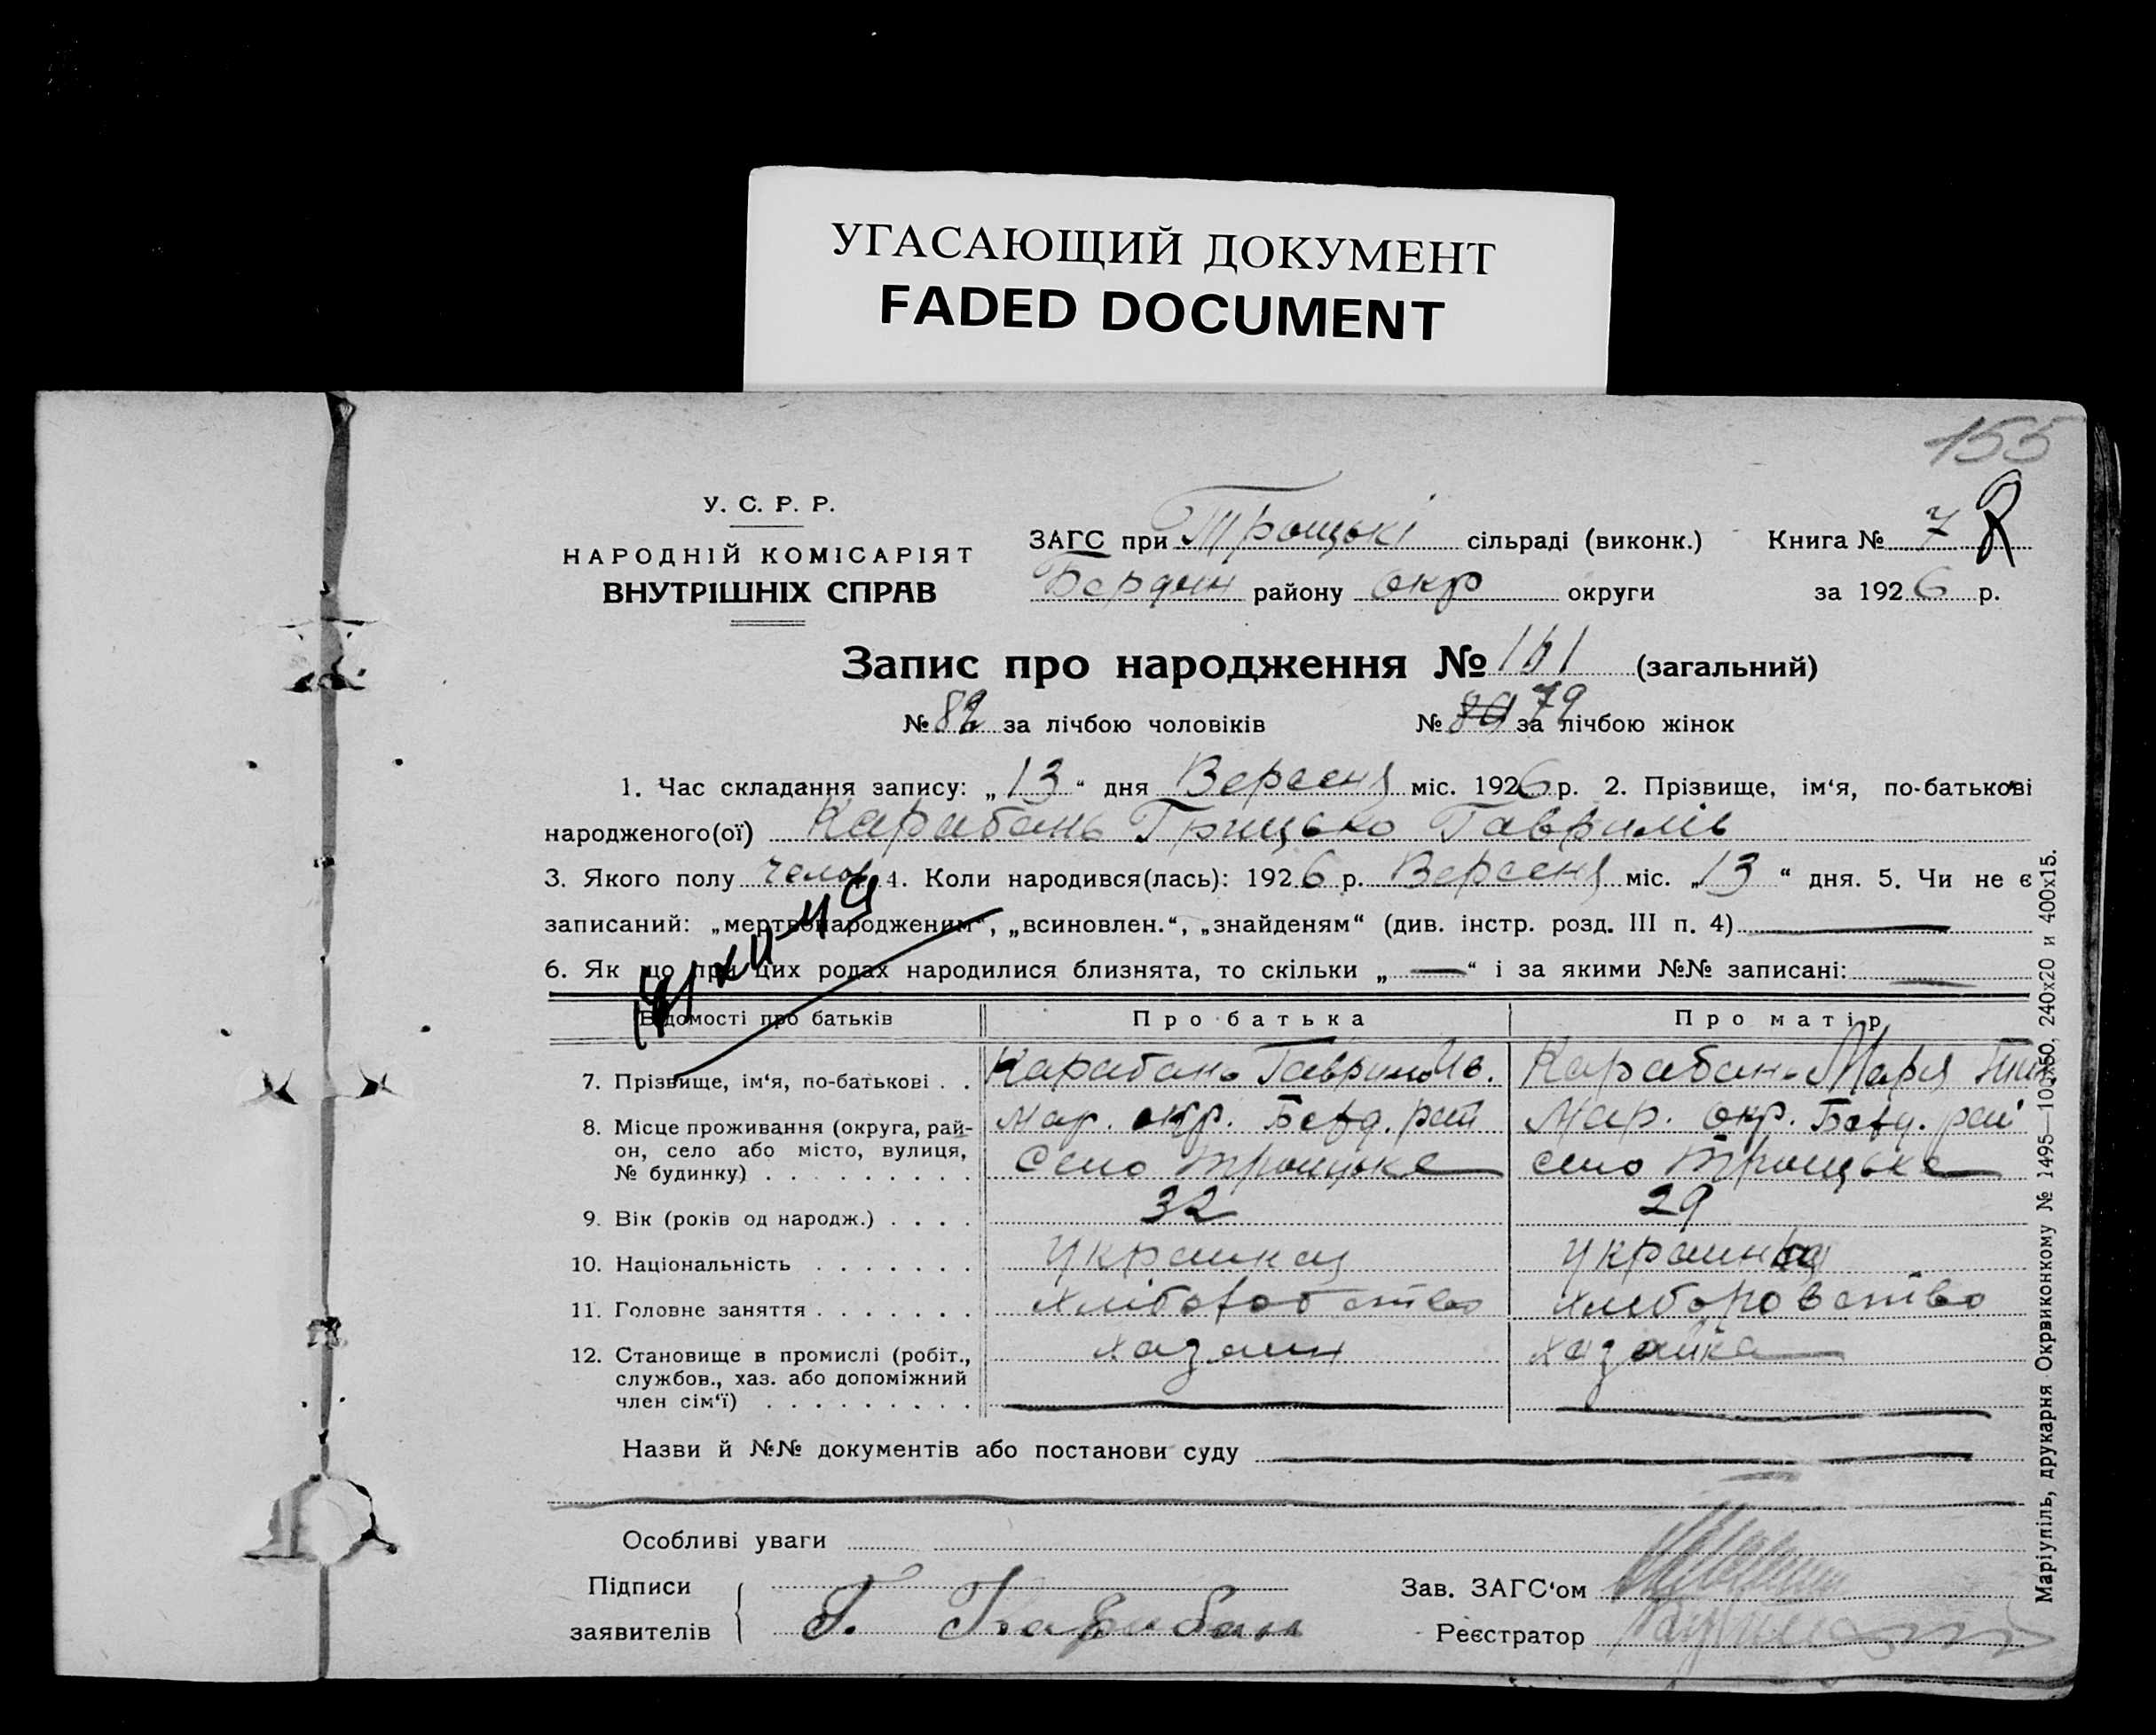 УГАСАЮЩИЙ ДОКУМЕНТ
FADED DOCUMENT
155
У. С. Р. Р.
НАРОДНІЙ КОМІСАРІЯТ
ВНУТРІШНІХ СПРАВ
ЗАГС при Троцькі сільраді (виконк.) Книга № 7
Бердян району окр округи за 1926 р.
Запис про народження № 161 (загальний)
№ 82 за лічбою чоловіків № 79 за лічбою жінок
1. Час складання запису: „13“ дня Вересня міс. 1926 р. 2. Прізвище, ім‘я, по-батькові
народженого(ої) Карабань Грицько Гаврилів
3. Якого полу челов 4. Коли народився(лась): 1926 р. Вересня міс. „13“ дня. 5. Чи не є
записаний: „мертвонародженим“, „всиновлен.“, „знайденям“ (див. інстр. розд. III п. 4)
6. Як що при цих родах народилися близнята, то скільки „—“ і за якими №№ записані:
Відомості про батьків Про батька Про матір
7. Прізвище, ім‘я, по-батькові . . Карабань Гаврило Ів. Карабань Марія
8. Місце проживання (округа, рай- Мар. окр. Берд. рай Мар. окр. Берд. рай
он, село або місто, вулиця, Село Троицьке село Троицьке
№ будинку) . . . . . . . . .
9. Вік (років од народж.) . . . . 32 29
10. Національність . . . . . . . Украинец Украинка
11. Головне заняття . . . . . . . Хліборобство хлиборобство
12. Становище в промислі (робіт., хазаин хазаика
службов., хаз. або допоміжний
член сім‘ї) . . . . . . . . .
Назви й №№ документів або постанови суду
Особливі уваги
Підписи Зав. ЗАГС‘ом
заявителів Г. Карабан Реєстратор
Маріупіль, друкарня Окрвиконкому № 1495—100x50, 240x20 и 400x15.